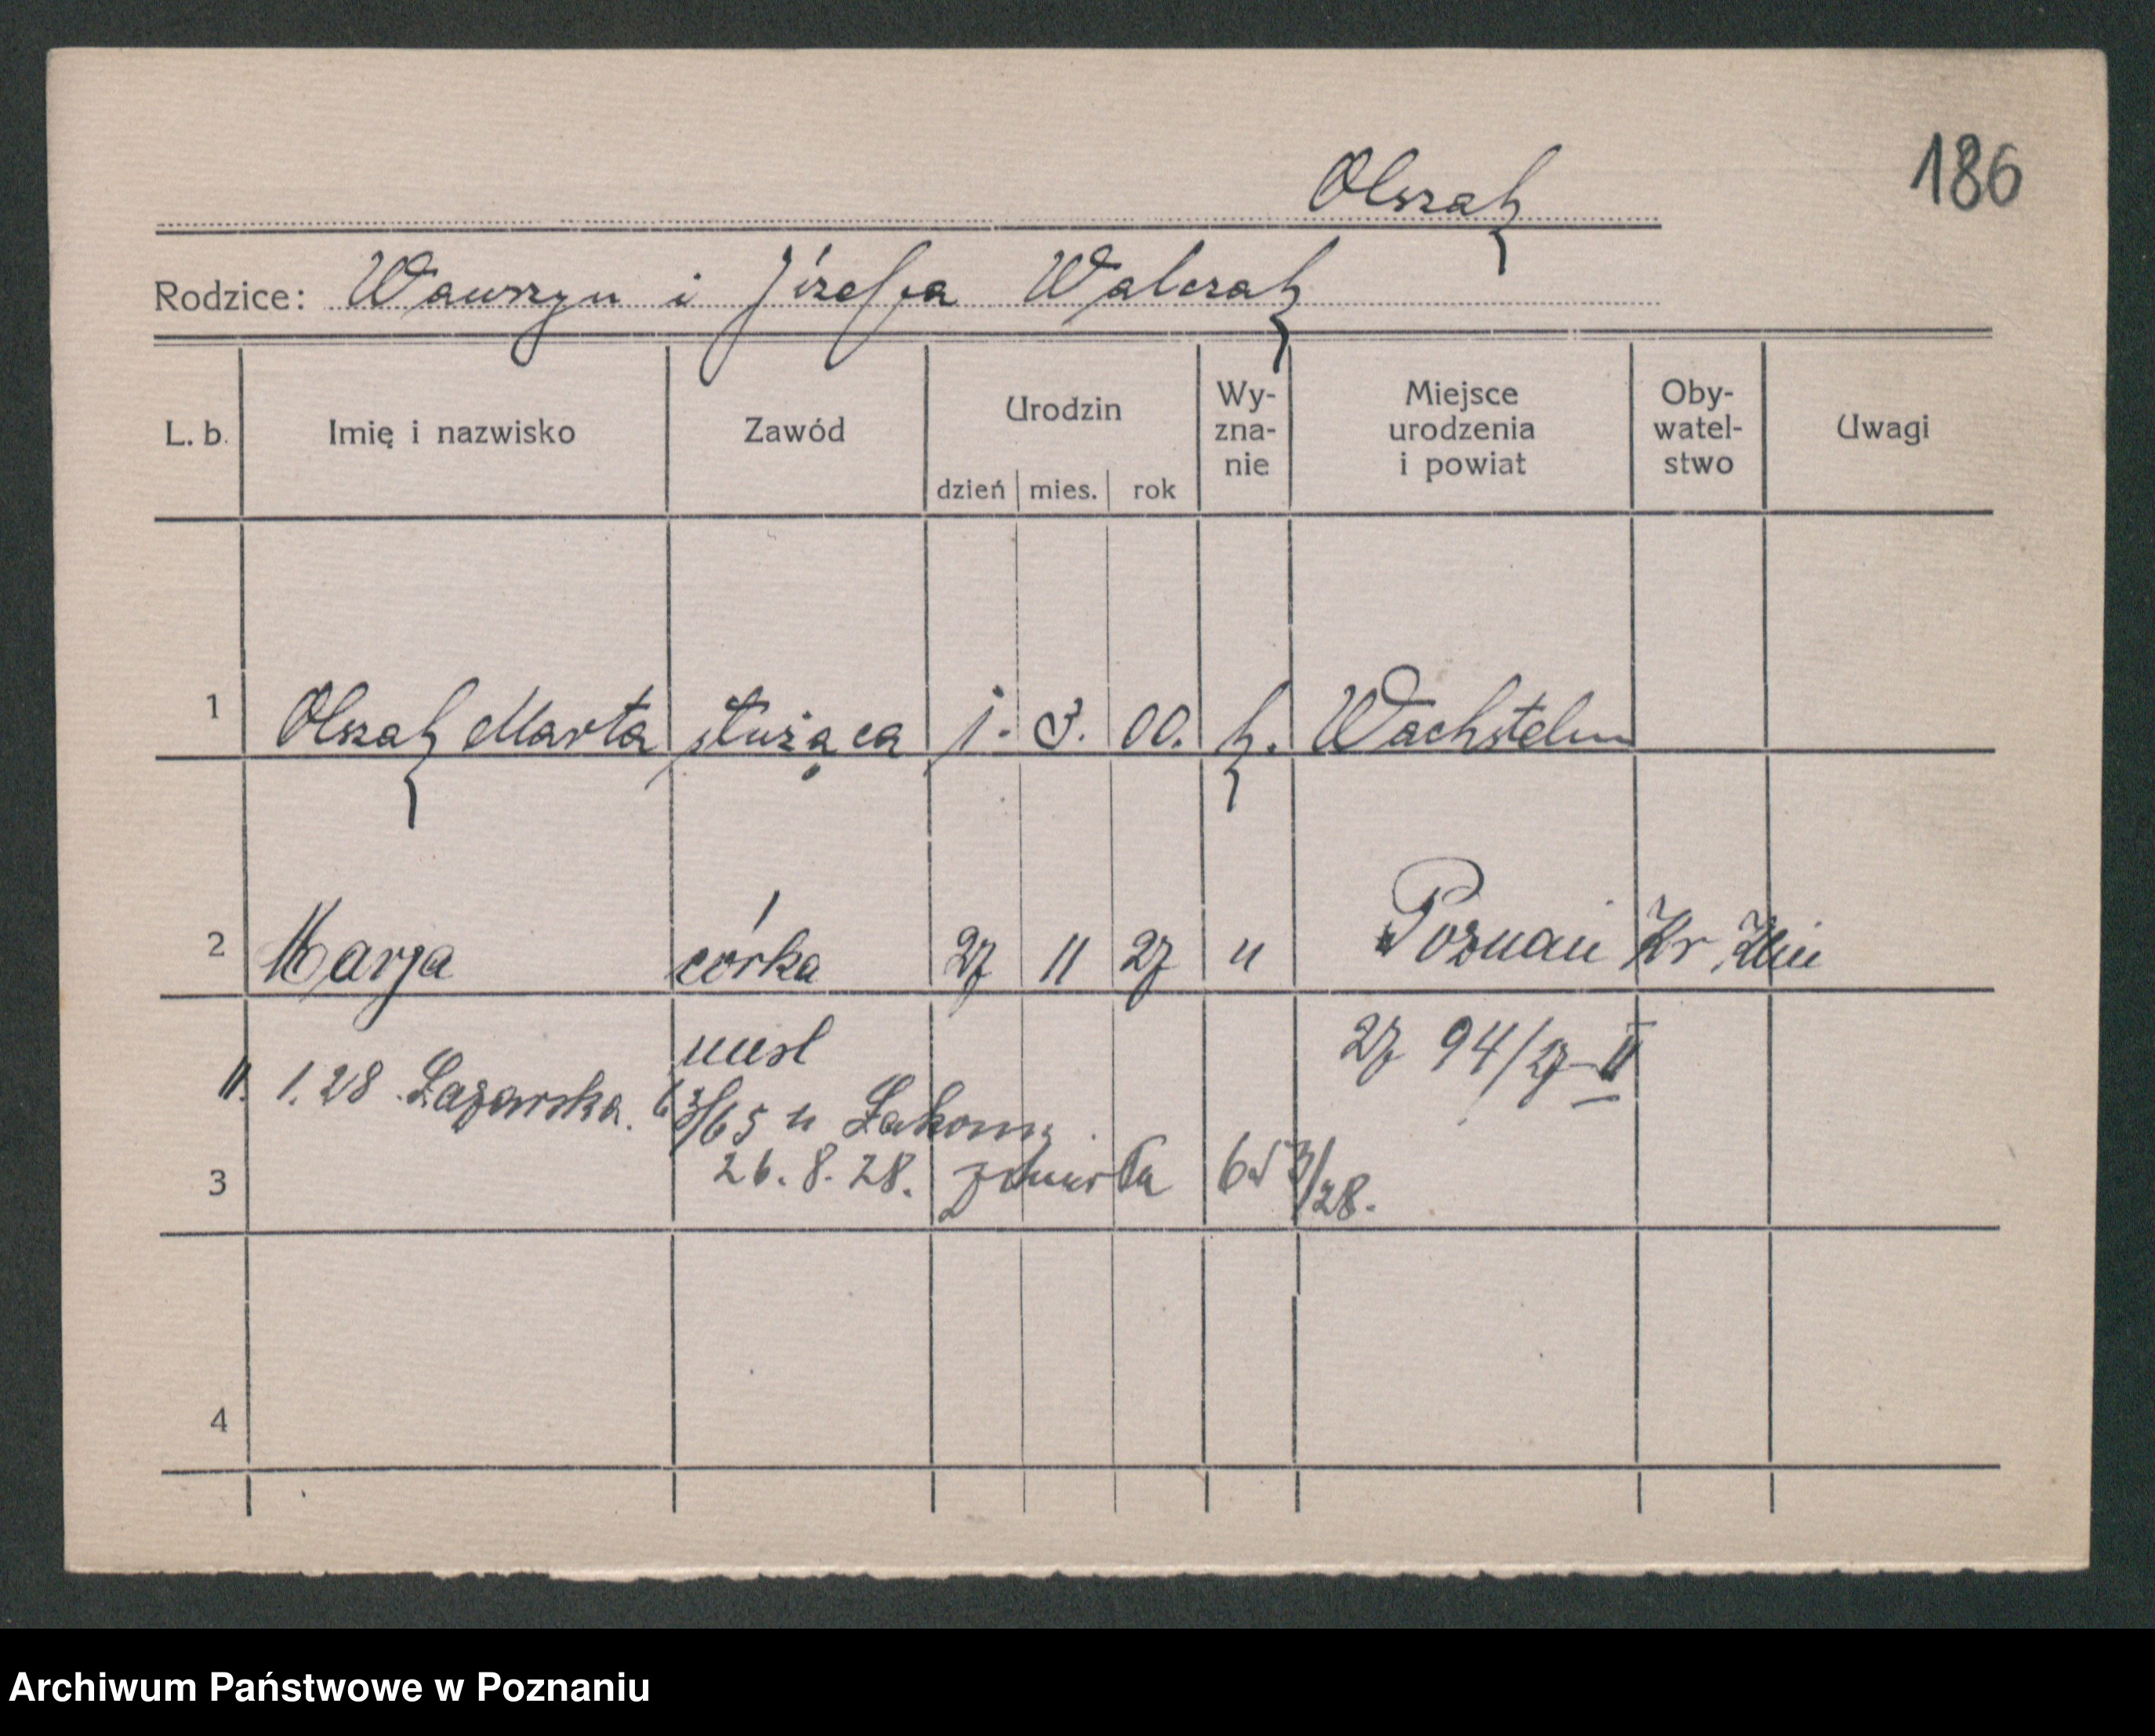 186
Olszak
Rodzice: Wawrzyn i Józefa Walczak
L. b. Imię i nazwisko Zawód Urodzin dzień mies. rok Wy- zna- nie Miejsce urodzenia i powiat Oby- watel- stwo Uwagi
1 Olszak Marta służąca 1. 3. 00. k.
2 Marja córka 27 11 27 " Poznań Kr.
27 94/27-II
11. 1. 28 Łazarska. u
3 26. 8. 28. zmarła /28.
4
Archiwum Państwowe w Poznaniu